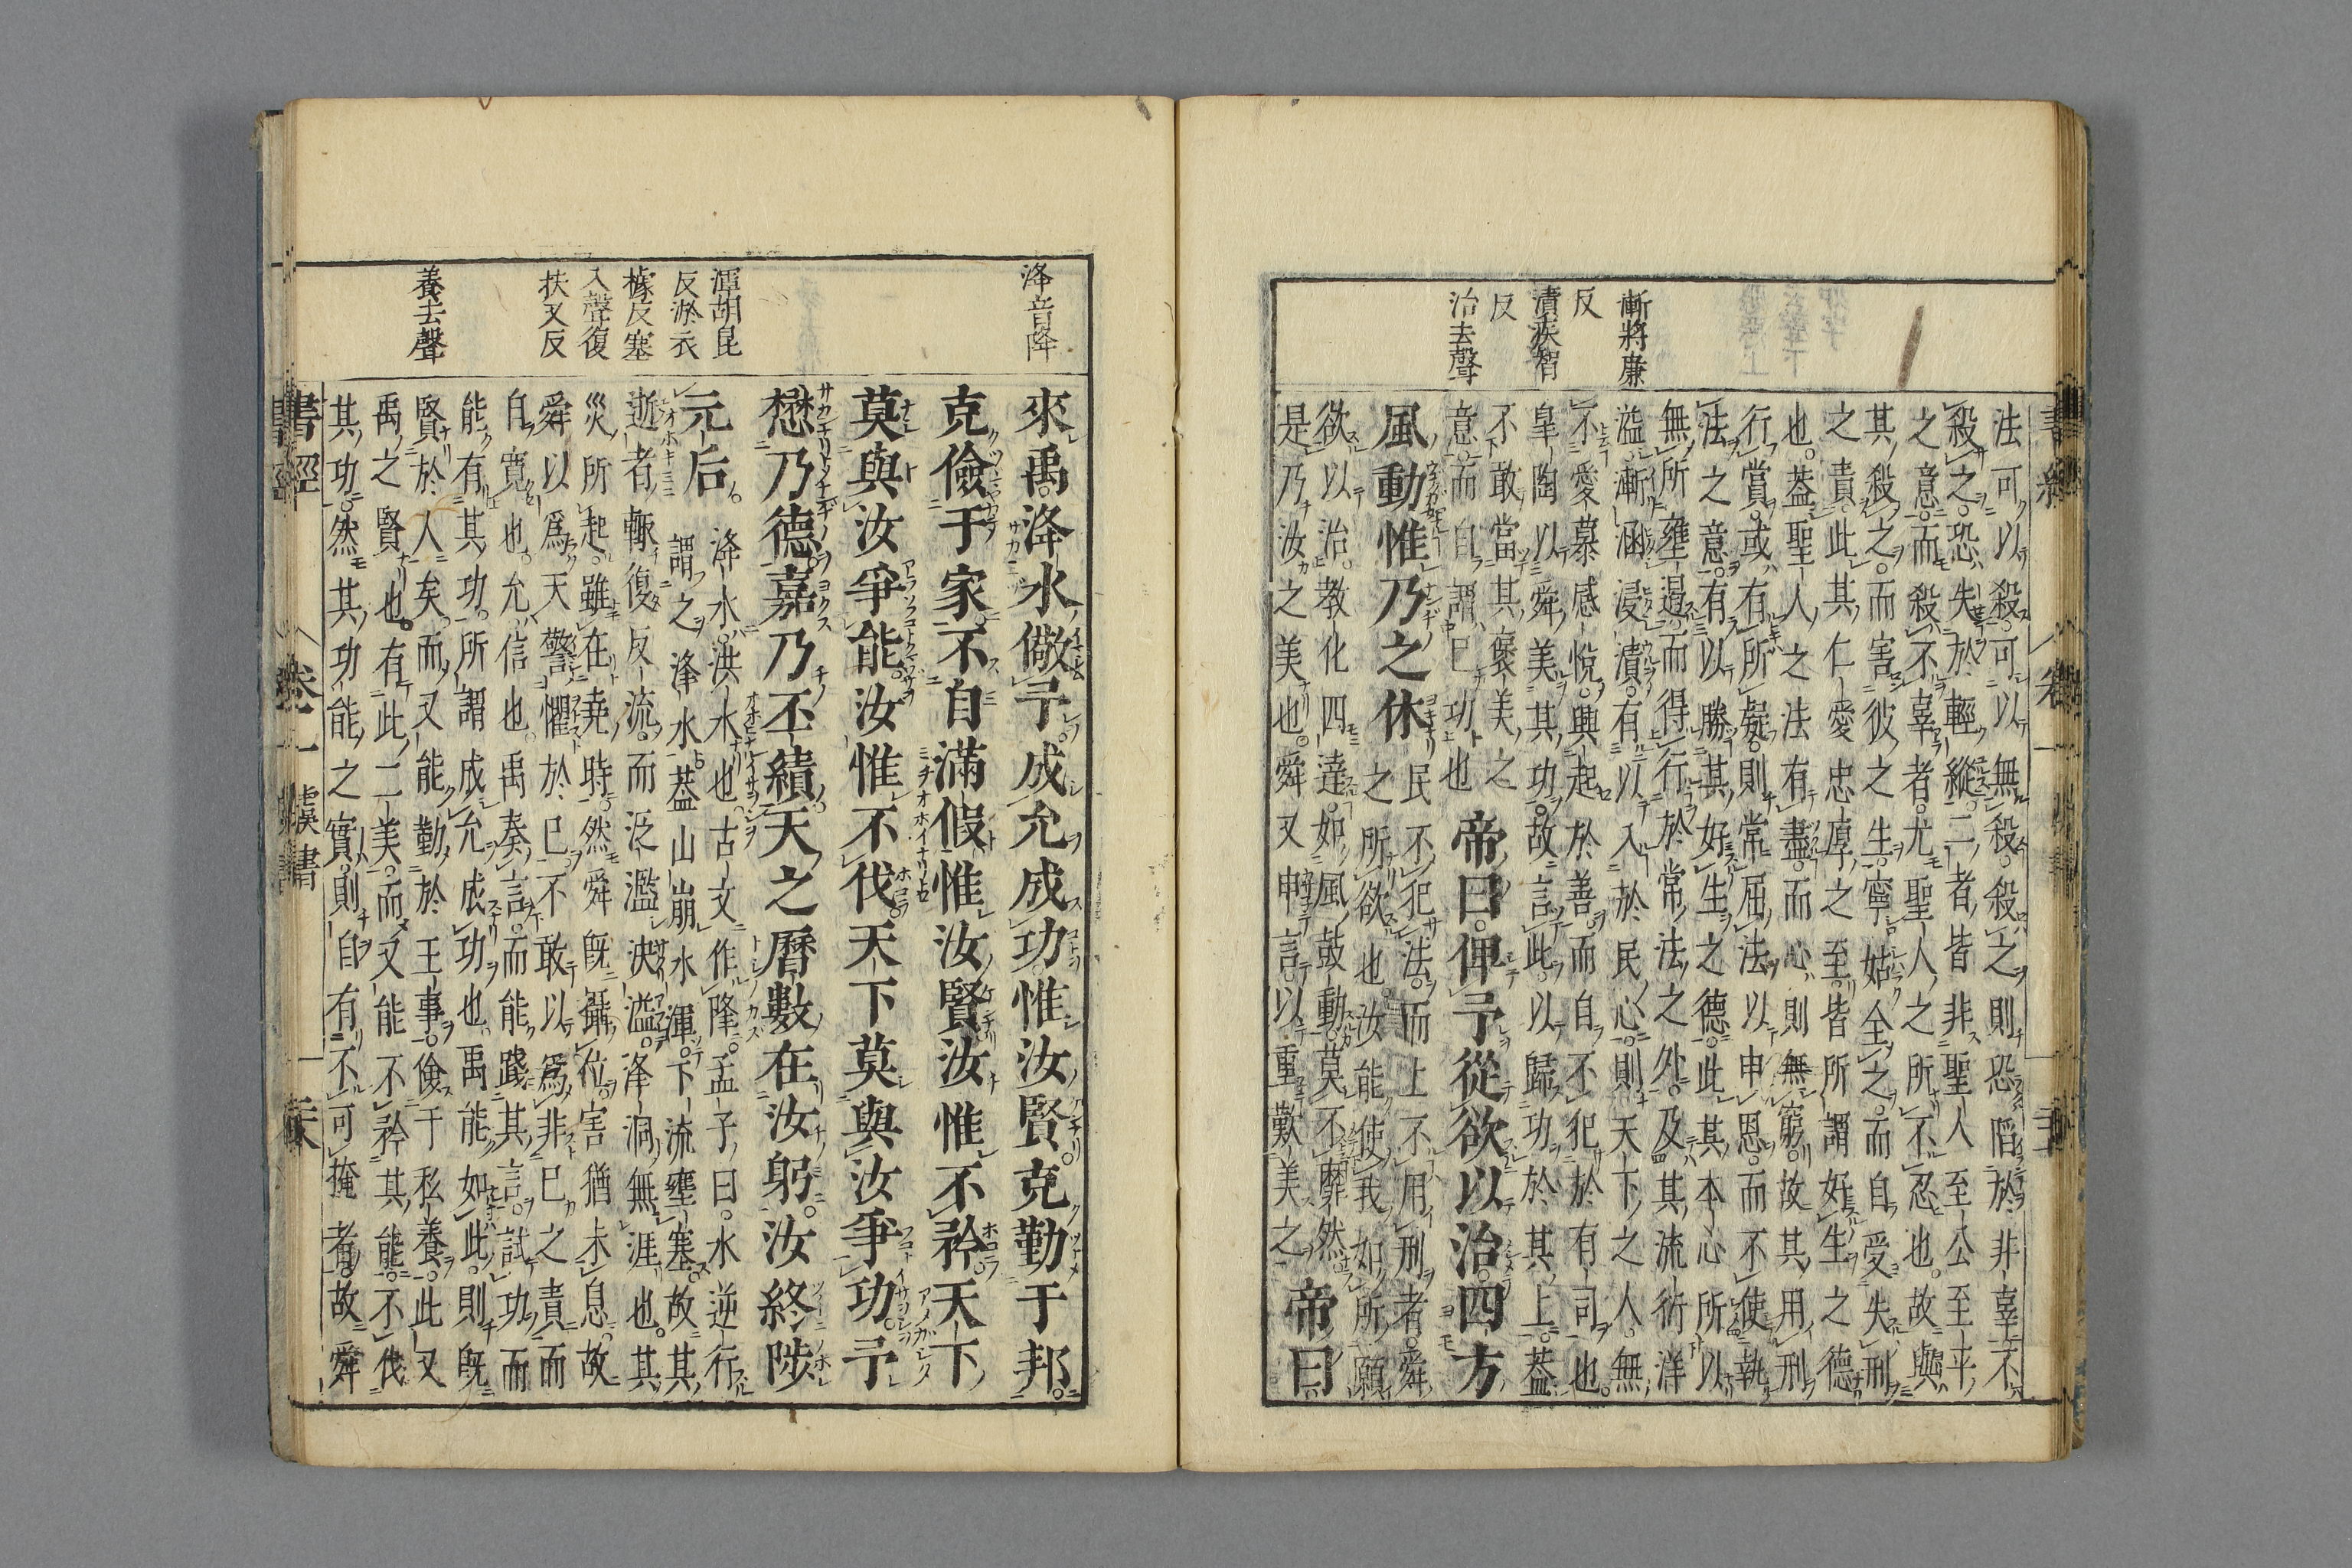 漸將廉
反
漬疾智
反
治去聲
法可以殺可以無殺殺之則恐陷於非辜不
殺之恐失於輕縱二者皆非聖人至公至平
之意而殺不辜者尤聖人之所不忍也故與
其殺之而害彼之生寧姑全之而自受失刑
之責此其仁愛忠厚之至皆所謂好生之德
也葢聖人之法有盡而心則無窮故其用刑
行賞或有所疑則常屈法以申恩而不使執
法之意有以勝其好生之德此其本心所以
無所壅遏而得行於常法之外及其流衍洋
溢漸涵浸漬有以入於民心則天下之人無
不愛慕感悅興起於善而自不犯於有司也
皐陶以舜美其功故言此以歸功於其上葢
不敢當其褒美之
意而自謂己功也
帝曰俾予從欲以治四方
風動惟乃之休
民不犯法而上不用刑者舜
之所欲也汝能使我如所願
欲以治教化四達如風鼓動莫不靡然
是乃汝之美也舜又申言以重歎美之
帝曰
洚音降
渾胡昆
反淤衣
據反塞
入聲復
扶又反
養去聲
來禹洚水儆予成允成功惟汝賢克勤于邦
克儉于家不自滿假惟汝賢汝惟不矜天下
莫與汝爭能汝惟不伐天下莫與汝爭功予
懋乃德嘉乃丕績天之曆數在汝躬汝終陟
元后
洚水洪水也古文作降孟子曰水逆行
謂之洚水葢山崩水渾下流壅塞故其
逝者輒復反流而泛濫決溢洚洞無涯也其
災所起雖在堯時然舜旣攝位害猶未息故
舜以爲天警懼於己不敢以爲非己之責而
自寬也允信也禹奏言而能踐其言試功而
能有其功所謂成允成功也禹能如此則旣
賢於人矣而又能勤於王事儉于私養此又
禹之賢也有此二美而又能不矜其能不伐
其功然其功能之實則自有不可掩者故舜
書經
卷一
虞書